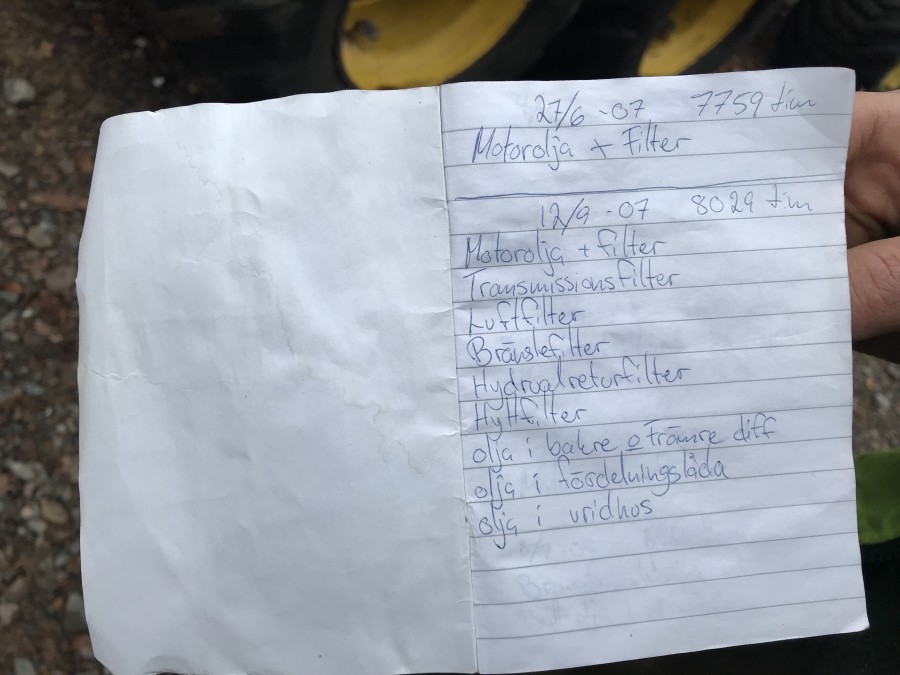 27/6 -07 7759 tim
Motorolja + Filter
12/9 -07 8029 tim
Motorolja + filter
Transmissionsfilter
Luftfilter
Bränslefilter
Hydroalreturfilter
Hyttfilter
olja i bakre o främre diff
olja i fördelningslåda
olja i vridhus